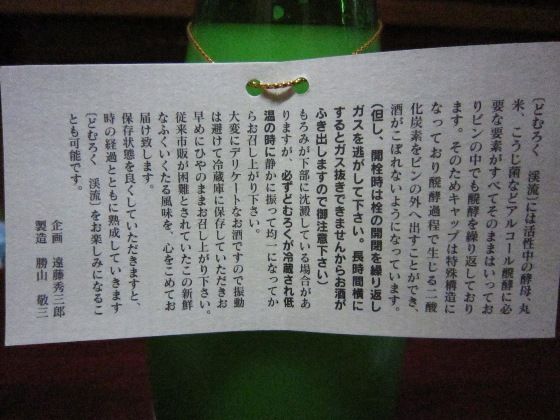 〔どむろく 渓流〕には活性中の酵母、丸
米、こうじ菌などアルコール醗酵に必
要な要素がすべてそのままはいってお
りビンの中でも醗酵を繰り返しており
ます。そのためキャップは特殊構造に
なっており醗酵過程で生じる二酸
化炭素をビンの外へ出すことができ、
酒がこぼれないようになっています。
(但し、開栓時は栓の開閉を繰り返し
ガスを逃がして下さい。長時間横に
するとガス抜きできませんからお酒が
ふき出しますので御注意下さい)
もろみが下部に沈澱している場合があ
りますが、必ずどむろくが冷蔵され低
温の時に静かに振って均一になってか
らお召し上がり下さい。
大変にデリケートなお酒ですので振動
は避けて冷蔵庫に保存していただきお
早めにひやのままお召し上がり下さい。
従来市販が困難とされていたこの新鮮
なふくいくたる風味を、心をこめてお
届け致します。
保存状態を良くしていただきますと、
時の経過とともに熟成していきます
〔どむろく 渓流〕をお楽しみになるこ
とも可能です。
企画 遠藤秀三郎
製造 勝山敬三